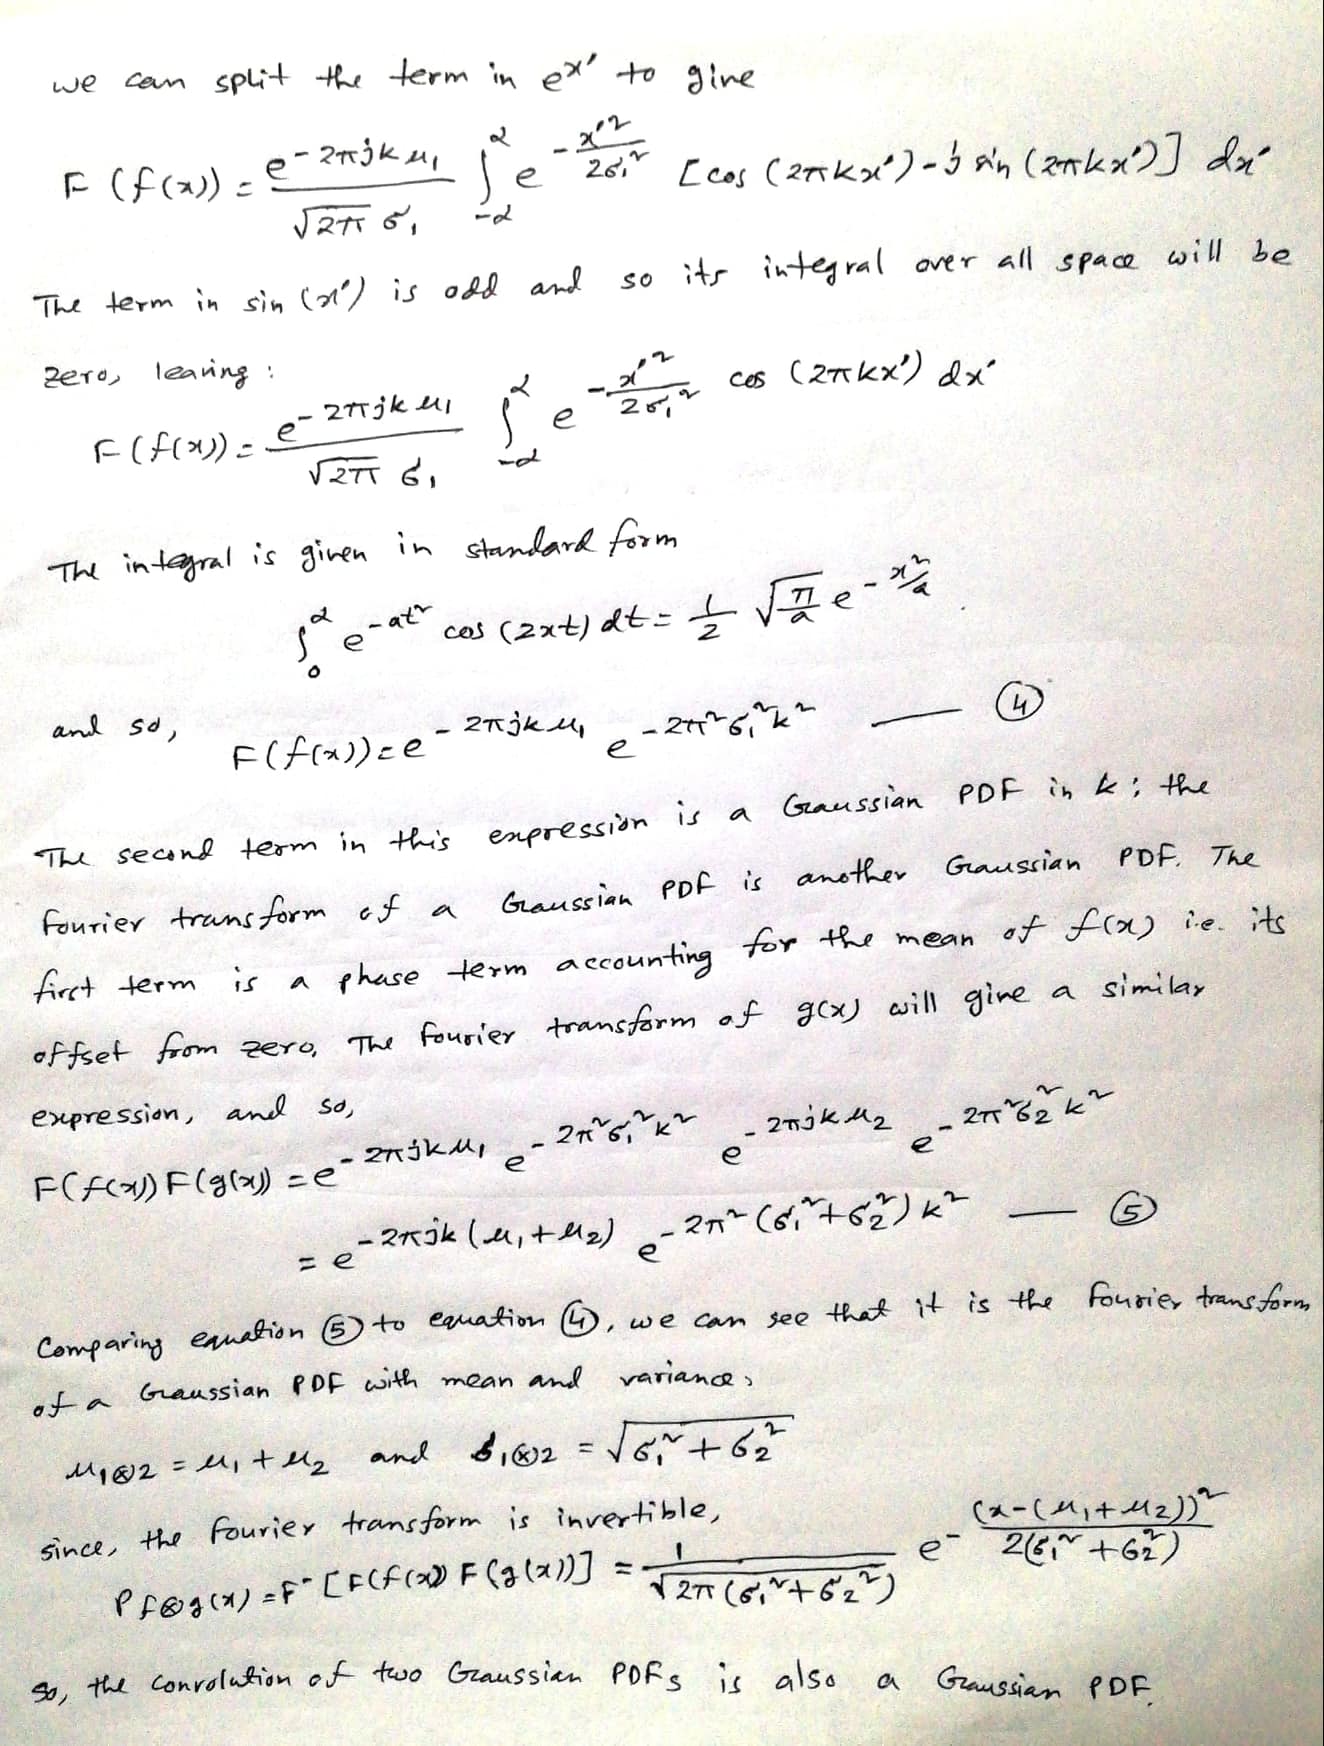 we can split the term in e^x' to give
F(f(x)) = e^{-2πjkμ₁} / √2π σ₁ ∫_{-α}^{α} e^{-x'²/2σ₁²} [cos (2πkx') - j sin (2πkx')] dx'
The term in sin (x') is odd and so its integral over all space will be
zero, leaving :
F(f(x)) = e^{-2πjkμ₁} / √2π σ₁ ∫_{-α}^{α} e^{-x'²/2σ₁²} cos (2πkx') dx'
The integral is given in standard form
∫_0^α e^{-at²} cos (2xt) dt = 1/2 √(π/a) e^{-x²/a}
and so,
F(f(x)) = e^{-2πjkμ₁} e^{-2π²σ₁²k²} — ④
The second term in this expression is a Gaussian PDF in k; the
fourier transform of a Gaussian PDF is another Gaussian PDF. The
first term is a phase term accounting for the mean of f(x) i.e. its
offset from zero, The Fourier transform of g(x) will give a similar
expression, and so,
F(f(x)) F(g(x)) = e^{-2πjkμ₁} e^{-2π²σ₁²k²} e^{-2πjkμ₂} e^{-2π²σ₂²k²}
= e^{-2πjk(μ₁+μ₂)} e^{-2π²(σ₁²+σ₂²)k²} — ⑤
Comparing equation ⑤ to equation ④, we can see that it is the Fourier transform
of a Gaussian PDF with mean and variance,
μ_{1⊗2} = μ₁ + μ₂ and σ_{1⊗2} = √(σ₁² + σ₂²)
since, the Fourier transform is invertible,
P_{f⊗g}(x) = F⁻ [F(f(x)) F(g(x))] = 1 / √2π(σ₁²+σ₂²) e^{-(x-(μ₁+μ₂))² / 2(σ₁²+σ₂²)}
So, the convolution of two Gaussian PDFs is also a Gaussian PDF.